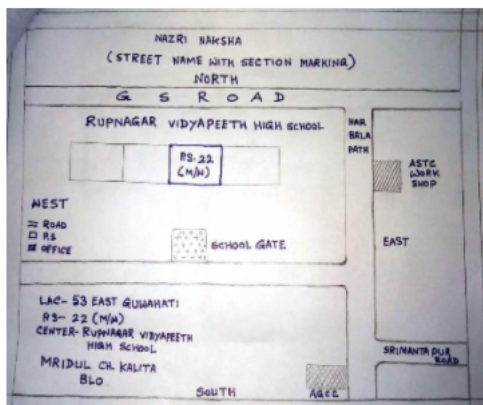 NAZRI NAKSHA
(STREET NAME WITH SECTION MARKING)
NORTH
G S ROAD
RUPNAGAR VIDYAPEETH HIGH SCHOOL
HAR
BALA
PATH
PS-22
(M/W)
ASTC
WORK
SHOP
WEST
ROAD
P.S
OFFICE
SCHOOL GATE
EAST
LAC-53 EAST GUWAHATI
PS-22 (M/W)
CENTER-RUPNAGAR VIDYAPEETH
HIGH SCHOOL
MRIDUL CH. KALITA
BLO.
SOUTH
AGCC
SRIMANTAPUR
ROAD